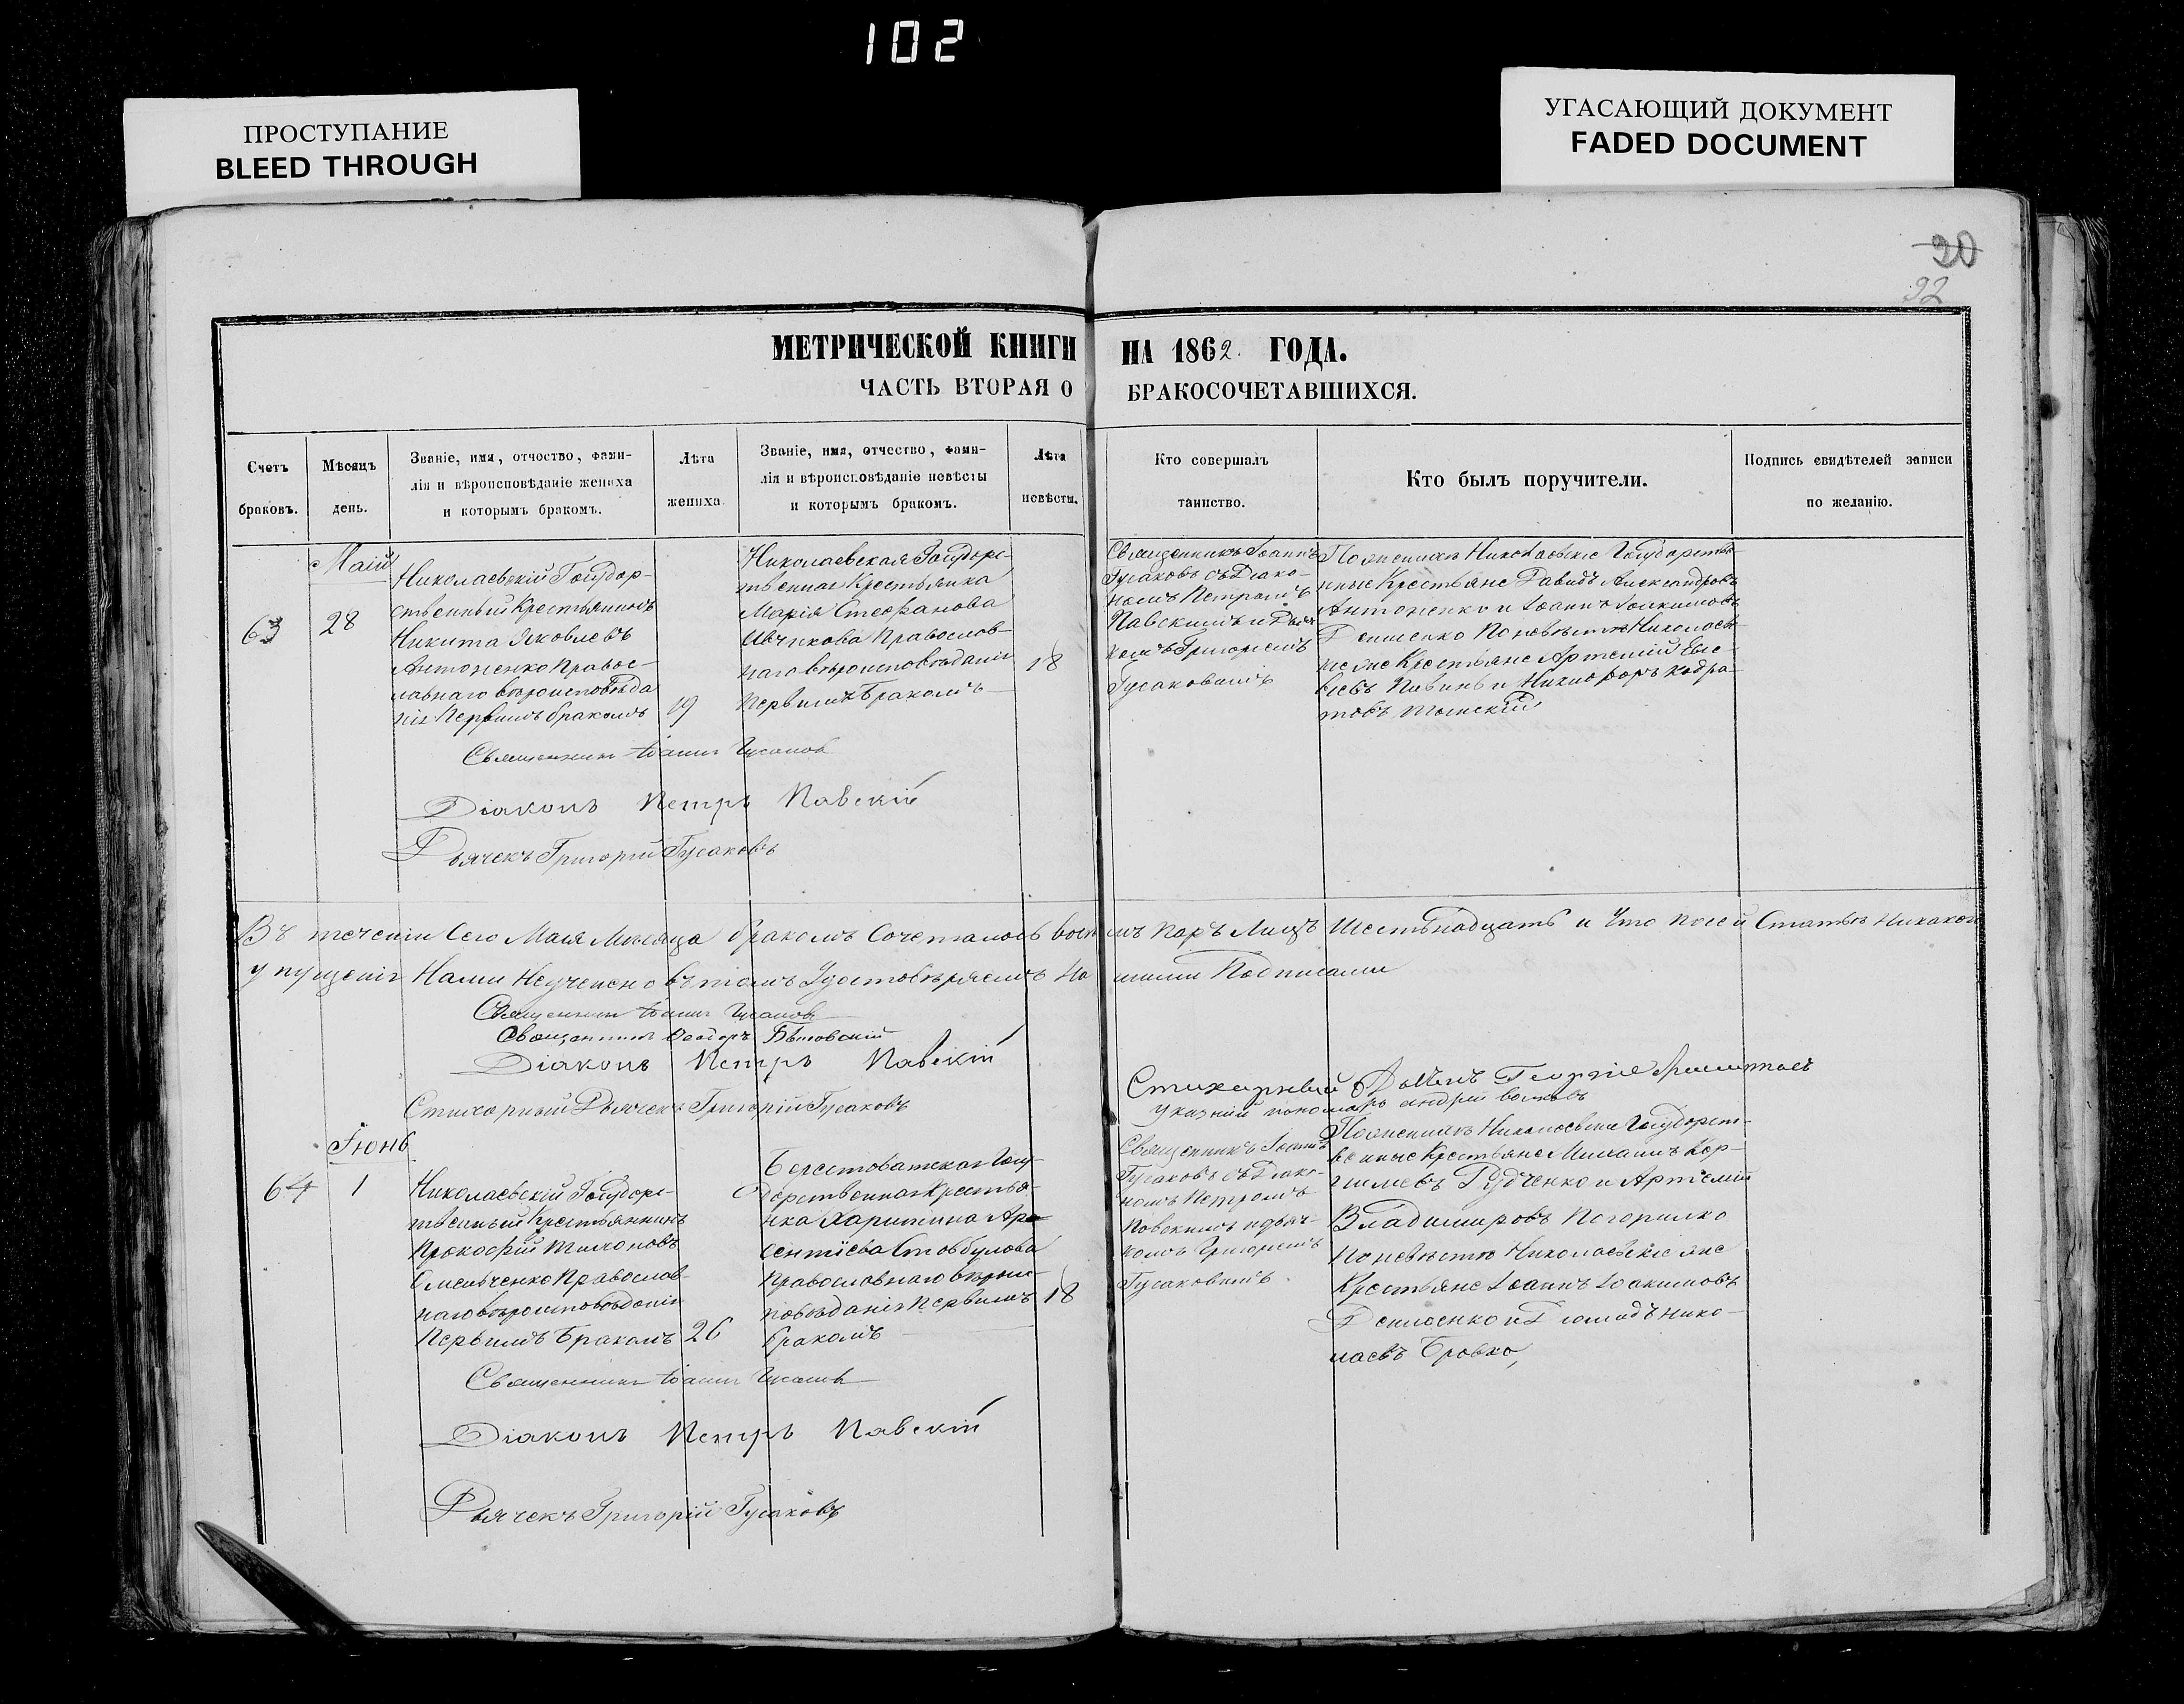 102
ПРОСТУПАНИЕ
BLEED THROUGH
УГАСАЮЩИЙ ДОКУМЕНТ
FADED DOCUMENT
20
92
МЕТРИЧЕСКОЙ КНИГИ НА 1862. ГОДА.
ЧАСТЬ ВТОРАЯ О БРАКОСОЧЕТАВШИХСЯ.
Счетъ
браковъ.
Мѣсяцъ
день.
Званіе, имя, отчество, фами-
лія и вѣроисповѣданіе жениха
и которымъ бракомъ.
Лѣта
жениха
Званіе, имя, отчество, фами-
лія и вѣроисповѣданіе невѣсты
и которымъ бракомъ.
Лѣта
невѣсты.
Кто совершалъ
таинство.
Кто былъ поручители.
Подпись свидѣтелей записи
по желанію.
Маій
63
28
Николаевскій Государ-
ственный Крестьянинъ
Никита Яковлевъ
Антоненко Правос-
лавнаго вѣроисповѣда
нія Первымъ бракомъ
19
Николаевская Государс-
твенная Крестьянка
Марія Стефанова
Ивчикова Православ-
наго вѣроисповѣданія
Первымъ Бракомъ
18
Священникъ Іоаннъ
Гусаковъ съ Діако-
номъ Петромъ
Павскимъ и Дьяч
комъ Григоріемъ
Гусаковымъ
По женихѣ Николаевскіе Государстве-
нные Крестьяне Давидъ Александровъ
Антоненко и Іоаннъ Іоакимовъ
Денисенко По невѣстѣ Николаевс-
кіе Крестьяне Артемій
Пивинь и Никифоръ
Священникъ Іоаннъ Гусаковъ
Діаконъ Петръ Павскій
Дьячекъ Григорій Гусаковъ
Въ теченіи Сего Маія Мѣсяца бракомъ Сочеталось восемъ Паръ Лицъ Шестьнадцать и Что по сей Статьѣ Никакого
упущенія Нами Неучинено въ томъ Удостовѣряемъ Нашими Подписами
Священникъ Іоаннъ Гусаковъ
Священникъ Феодоръ
Діаконъ Петръ Павскій
Стихарный Дьячекъ Григорій Гусаковъ
Стихарный Георгій
Указный пономарь андрей
Іюнь
64
1
Николаевскій Государс-
твенный Крестьянинъ
Прокофій Тимоновъ
Омельченко Православ-
наго вѣроисповѣданія
Первымъ Бракомъ
26
Берестоватская Госу-
дарственная Крестья-
нка Харитина Арс
ентіева Стовбулова
Православнаго вѣроис-
повѣданія Первымъ
бракомъ
18
Священникъ Іоаннъ
Гусаковъ съ Діако-
номъ Петромъ
Павскимъ и дьяч-
комъ Григоріемъ
Гусаковымъ.
По женихѣ Николаевскіе Государст-
венные Крестьяне Михаилъ Кор-
ниліевъ Рудченко и Артемій
Владимировъ Погорилко
По невѣстѣ Николаевскіе
Крестьяне Іоаннъ Іоакимовъ
Денисенко и Діомидъ Нико-
лаевъ Бровко,
Священникъ Іоаннъ Гусаковъ
Діаконъ Петръ Павскій
Дьячекъ Григорій Гусаковъ